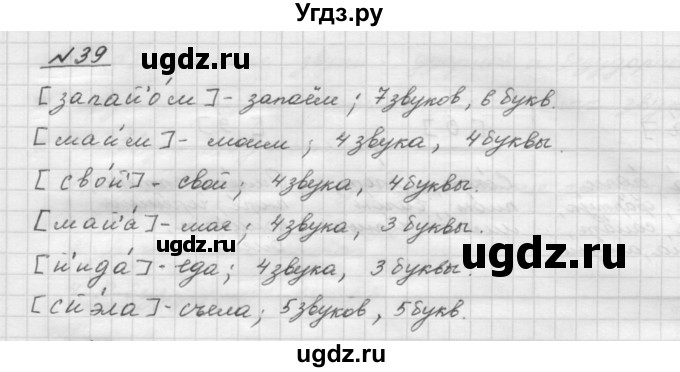 Угдз.ру
№39
ugdz.ru
[запай'о́м] - запаём; 7 звуков, 6 букв.
[маи́м] - моим; 4 звука, 4 буквы.
[свой'] - свой; 4 звука, 4 буквы.
[май'а́] - моя; 4 звука, 3 буквы.
ugdz.ru ugdz.ru
[й'ида́] - еда; 4 звука, 3 буквы.
[сй'э́ла] - съела; 5 звуков, 5 букв.
ugdz.ru